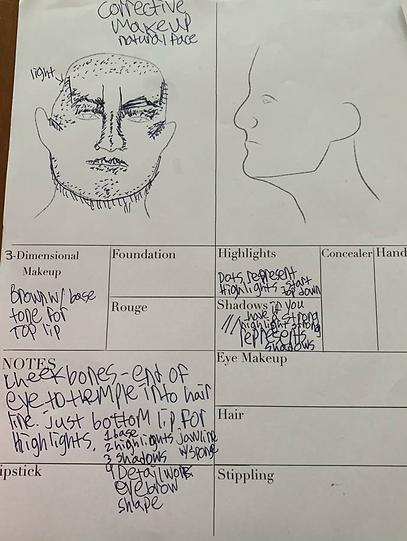 Corrective
Makeup
natural face
light
3-Dimensional
Makeup
Brown w/ base
tone for
Top lip
Foundation
Rouge
Highlights
Dots represent
Highlights start
top down
Concealer
Hand
Shadows if you
have a strong
/// highlight strong
represents
shadows
NOTES
cheekbones - end of
eye to themple into hair
line. Just bottom lip for
Highlights.
1 base
2 highlights jawline
3 shadows w/sponge
4 Detail work
eyebrow
shape
Eye Makeup
Hair
ipstick
Stippling